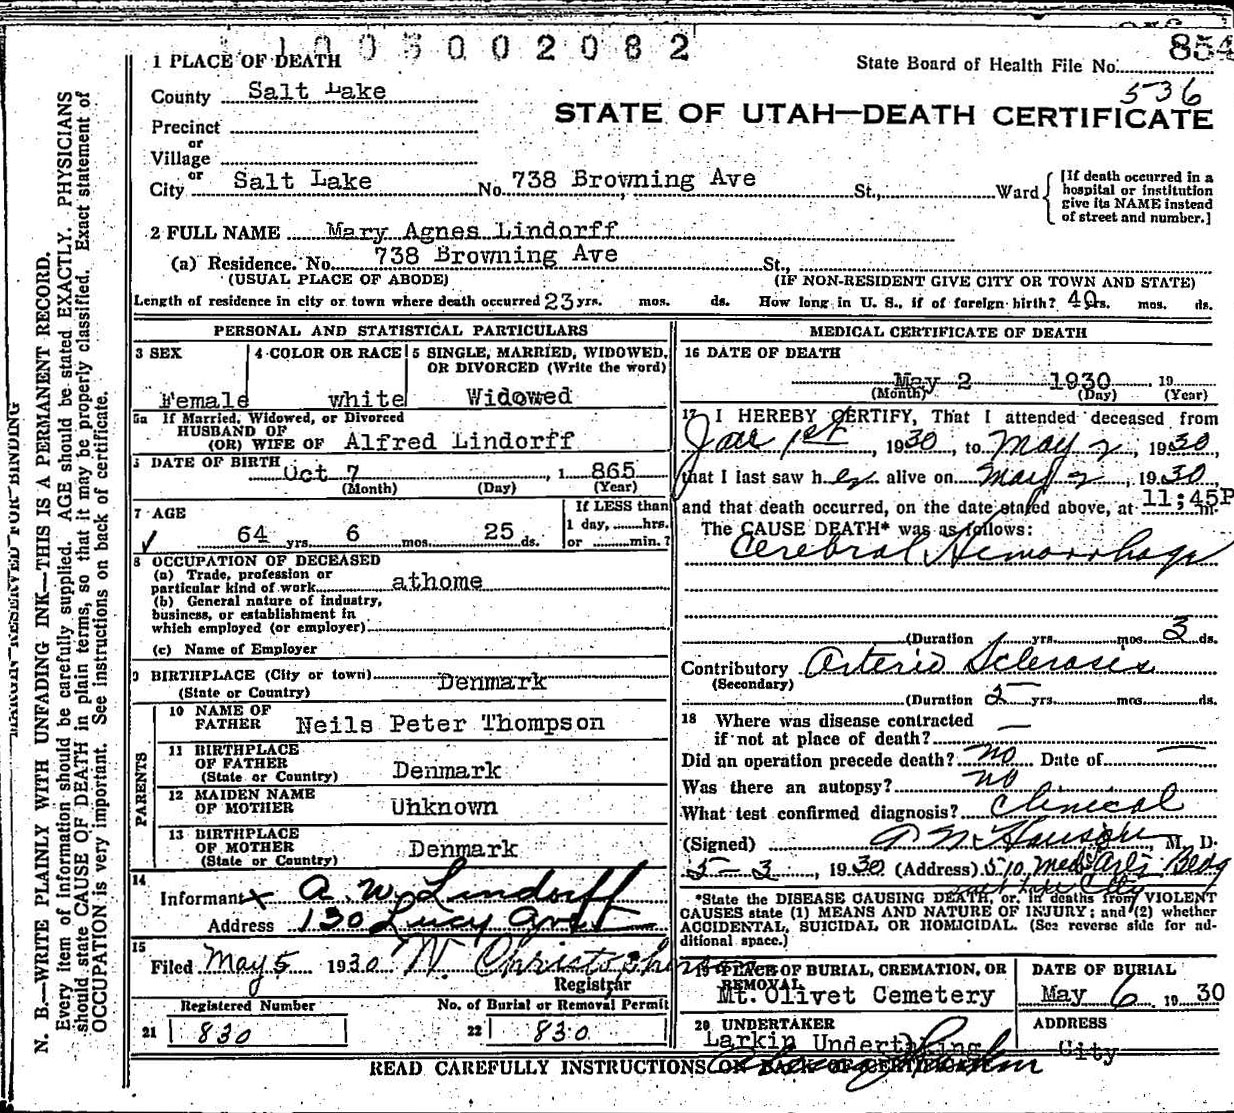 1005002082
854
1 PLACE OF DEATH
State Board of Health File No.
536
County Salt Lake
STATE OF UTAH—DEATH CERTIFICATE
Precinct
or
Village
or
City Salt Lake No. 738 Browning Ave St., Ward
[If death occurred in a hospital or institution give its NAME instead of street and number.]
2 FULL NAME Mary Agnes Lindorff
(a) Residence. No. 738 Browning Ave St.,
(USUAL PLACE OF ABODE) (IF NON-RESIDENT GIVE CITY OR TOWN AND STATE)
Length of residence in city or town where death occurred 23 yrs. mos. ds. How long in U. S., if of foreign birth? 40 yrs. mos. ds.
PERSONAL AND STATISTICAL PARTICULARS
3 SEX 4 COLOR OR RACE 5 SINGLE, MARRIED, WIDOWED, OR DIVORCED (Write the word)
Female white Widowed
5a If Married, Widowed, or Divorced
HUSBAND OF
(OR) WIFE OF Alfred Lindorff
DATE OF BIRTH Oct 7 1 865
(Month) (Day) (Year)
7 AGE
64 yrs. 6 mos. 25 ds.
If LESS than
1 day, hrs.
or min.?
8 OCCUPATION OF DECEASED
(a) Trade, profession or
particular kind of work athome
(b) General nature of industry,
business, or establishment in
which employed (or employer)
(c) Name of Employer
9 BIRTHPLACE (City or town) Denmark
(State or Country)
PARENTS
10 NAME OF FATHER Neils Peter Thompson
11 BIRTHPLACE OF FATHER
(State or Country) Denmark
12 MAIDEN NAME OF MOTHER Uhknown
13 BIRTHPLACE OF MOTHER
(State or Country) Denmark
14
Informant A. W. Lindorff
Address 130 Lucy
15
Filed May 5 1930 W. Christopherson
Registrar
Registered Number No. of Burial or Removal Permit
21 830 22 830
MEDICAL CERTIFICATE OF DEATH
16 DATE OF DEATH
May 2 1930 19
(Month) (Day) (Year)
17 I HEREBY CERTIFY, That I attended deceased from
Jan 1st, 1930, to May 2, 1930,
that I last saw her alive on May 2, 1930
and that death occurred, on the date stated above, at 11;45P m.
The CAUSE DEATH* was as follows:
Cerebral Hemorrhage
(Duration yrs. mos 3 ds.
Contributory Arterio Sclerosis
(Secondary)
(Duration 5 yrs. mos. ds.
18 Where was disease contracted
if not at place of death? —
Did an operation precede death? no Date of —
Was there an autopsy? no
What test confirmed diagnosis? Clinical
(Signed) M. D.
5-3, 1930 (Address) 510 Med Arts Bldg
Salt Lake City
*State the DISEASE CAUSING DEATH, or, in deaths from VIOLENT
CAUSES state (1) MEANS AND NATURE OF INJURY; and (2) whether
ACCIDENTAL, SUICIDAL OR HOMICIDAL. (See reverse side for ad-
ditional space.)
19 PLACE OF BURIAL, CREMATION, OR REMOVAL
Mt. Olivet Cemetery
DATE OF BURIAL
May 6 19 30
20 UNDERTAKER
Larkin Undertaking
ADDRESS
City
READ CAREFULLY INSTRUCTIONS ON BACK OF CERTIFICATE
MARGIN RESERVED FOR BINDING
N. B.—WRITE PLAINLY WITH UNFADING INK—THIS IS A PERMANENT RECORD.
Every item of information should be carefully supplied. AGE should be stated EXACTLY. PHYSICIANS
should state CAUSE OF DEATH in plain terms, so that it may be properly classified. Exact statement of
OCCUPATION is very important. See instructions on back of certificate.